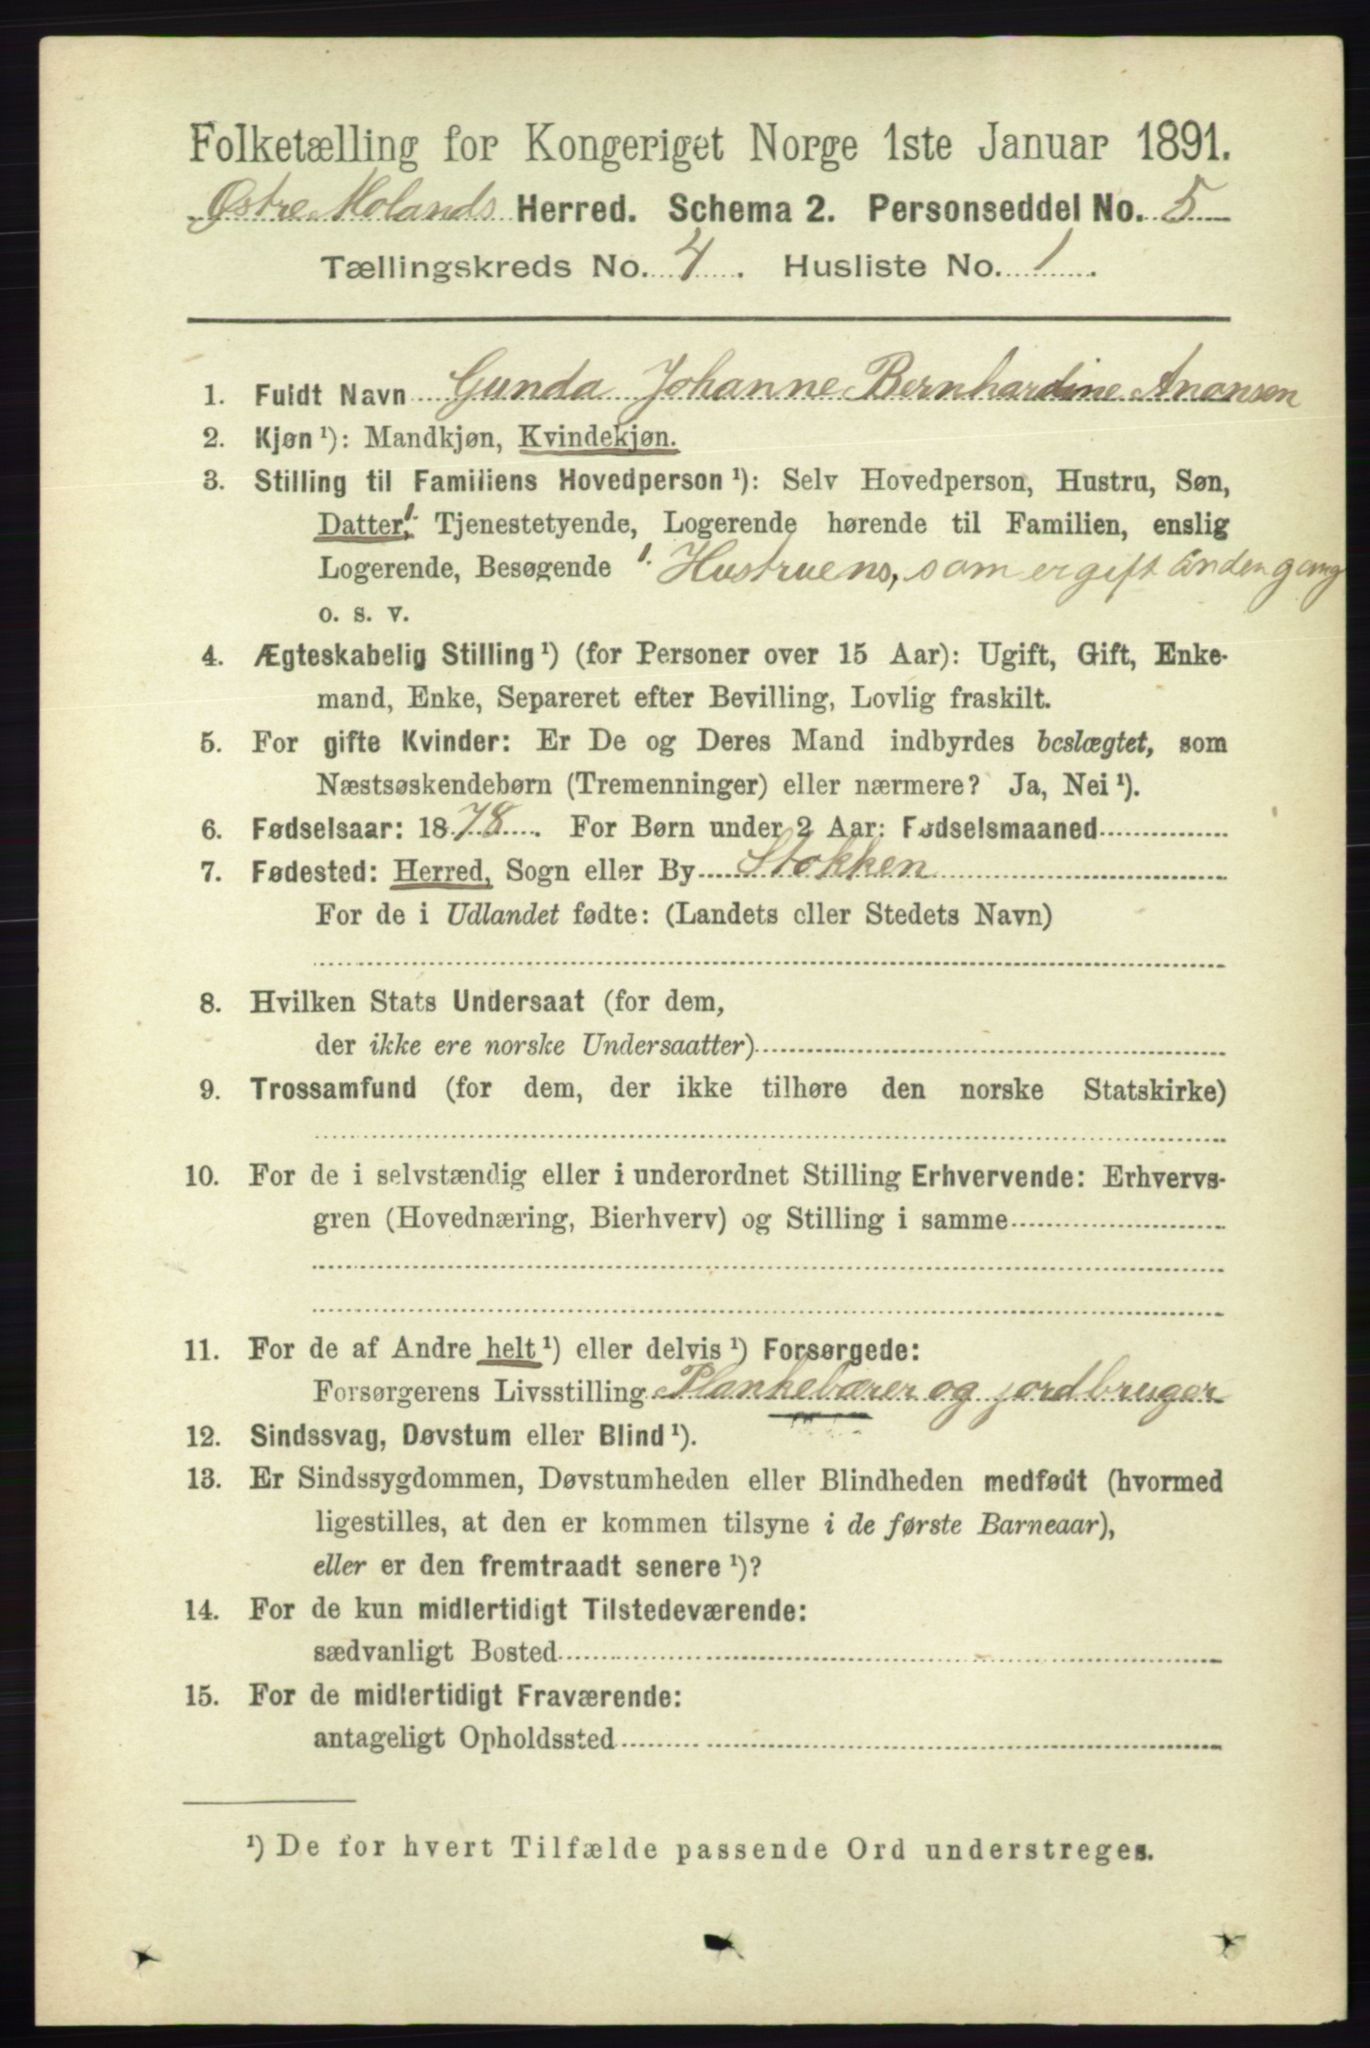 Folketælling for Kongeriget Norge 1ste Januar 1891.
Østre Molands Herred. Schema 2. Personseddel No. 5
Tællingskreds No. 4. Husliste No. 1.
1. Fuldt Navn Gunda Johanne Bernhardine Anonsen
2. Kjøn ¹): Mandkjøn, Kvindekjøn.
3. Stilling til Familiens Hovedperson ¹): Selv Hovedperson, Hustru, Søn,
Datter, ¹· Tjenestetyende, Logerende hørende til Familien, enslig
Logerende, Besøgende ¹· Hustruens, som er gift anden gang
o. s. v.
4. Ægteskabelig Stilling ¹) (for Personer over 15 Aar): Ugift, Gift, Enke-
mand, Enke, Separeret efter Bevilling, Lovlig fraskilt.
5. For gifte Kvinder: Er De og Deres Mand indbyrdes beslægtet, som
Næstsøskendebørn (Tremenninger) eller nærmere? Ja, Nei ¹).
6. Fødselsaar: 1878. For Børn under 2 Aar: Fødselsmaaned
7. Fødested: Herred, Sogn eller By Stokken
For de i Udlandet fødte: (Landets eller Stedets Navn)
8. Hvilken Stats Undersaat (for dem,
der ikke ere norske Undersaatter)
9. Trossamfund (for dem, der ikke tilhøre den norske Statskirke)
10. For de i selvstændig eller i underordnet Stilling Erhvervende: Erhvervs-
gren (Hovednæring, Bierhverv) og Stilling i samme
11. For de af Andre helt ¹) eller delvis ¹) Forsørgede:
Forsørgerens Livsstilling Plankebærer og jordbruger
12. Sindssvag, Døvstum eller Blind ¹).
13. Er Sindssygdommen, Døvstumheden eller Blindheden medfødt (hvormed
ligestilles, at den er kommen tilsyne i de første Barneaar),
eller er den fremtraadt senere ¹)?
14. For de kun midlertidigt Tilstedeværende:
sædvanligt Bosted
15. For de midlertidigt Fraværende:
antageligt Opholdssted
¹) De for hvert Tilfælde passende Ord understreges.